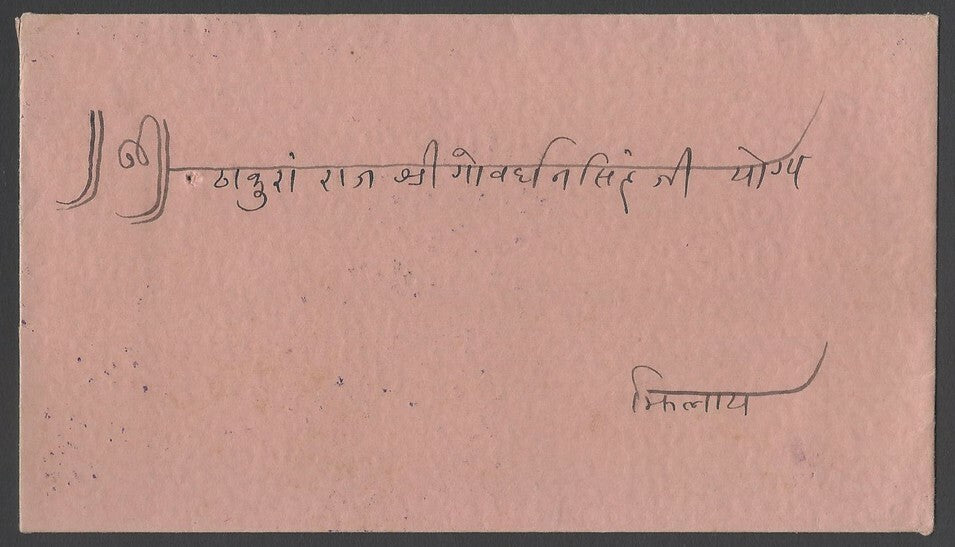 ॥ श्री ॥ ठाकुरां राज श्री गोवर्धनसिंह जी योग्य
झिलाय